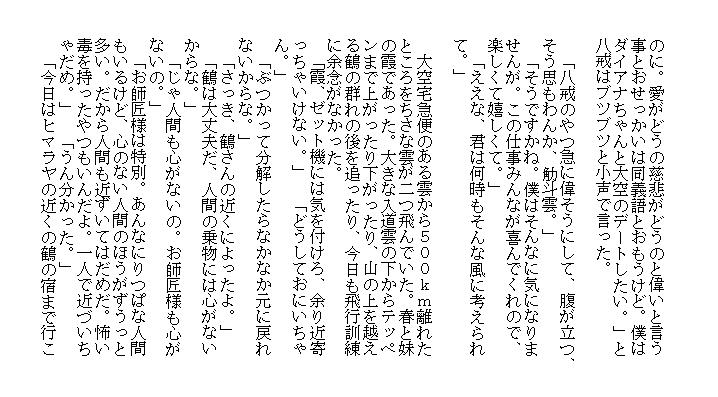 のに。愛がどうの慈悲がどうのと偉いと言う
事とおせっかいは同義語とおもうけど。僕は
ダイアナちゃんと大空のデートしたい。」と
八戒はブツブツと小声で言った。
「八戒のやつ急に偉そうにして、腹が立つ、
そう思もわんか、觔斗雲。」
「そうですかね。僕はそんなに気になりま
せんが。この仕事みんなが喜んでくれので、
楽しくて嬉しくて。」
「ええな、君は何時もそんな風に考えられ
て。」
大空宅急便のある雲から５００ｋｍ離れた
ところをちさな雲が二つ飛んでいた。春と妹
の霞であった。大きな入道雲の下からテッペ
ンまで上がったり下がったり、山の上を越え
る鶴の群れの後を追ったり、今日も飛行訓練
に余念がなかった。
「霞、ゼット機には気を付けろ、余り近寄
っちゃいけない。」　「どうしておにいちゃ
ん。」
「ぶつかって分解したらなかなか元に戻れ
ないからな。」
「さっき、鶴さんの近くによったよ。」
「鶴は大丈夫だ、人間の乗物には心がない
からな。」
「じゃ人間も心がないの。お師匠様も心が
ないの。」
「お師匠様は特別。あんなにりっぱな人間
もいるけど、心のない人間のほうがずうっと
多い。だから人間も近ずいてはだめだ。怖い
毒を持ったやつもいんだよ。一人で近づいち
ゃだめ。」　「うん分かった。」
「今日はヒマラヤの近くの鶴の宿まで行こ